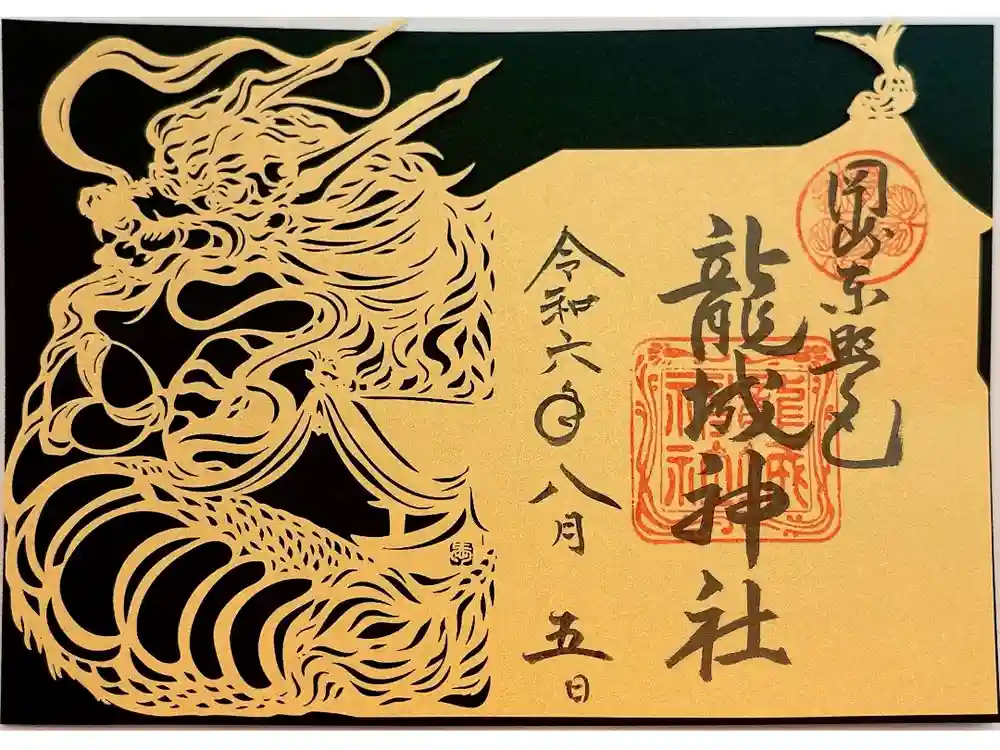 岡崎東照宮
龍城神社
龍城
神社
令和六年八月五日